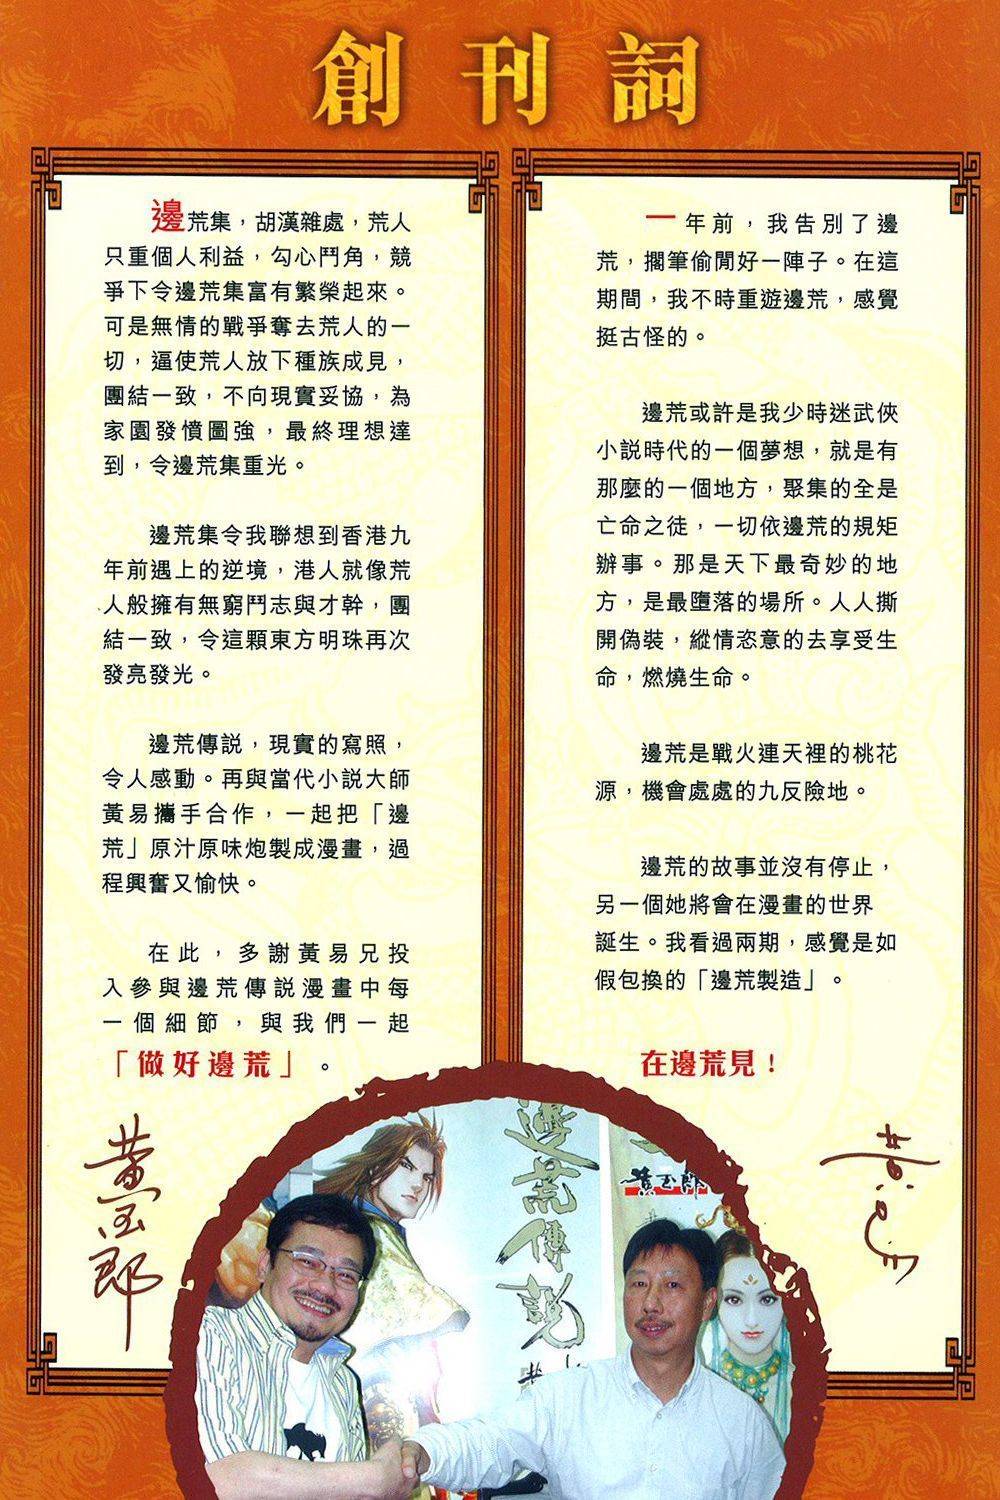 創刊詞
邊荒集，胡漢雜處，荒人
只重個人利益，勾心鬥角，競
爭下令邊荒集富有繁榮起來。
可是無情的戰爭奪去荒人的一
切，逼使荒人放下種族成見，
團結一致，不向現實妥協，為
家園發憤圖強，最終理想達
到，令邊荒集重光。
邊荒集令我聯想到香港九
年前遇上的逆境，港人就像荒
人般擁有無窮鬥志與才幹，團
結一致，令這顆東方明珠再次
發亮發光。
邊荒傳説，現實的寫照，
令人感動。再與當代小説大師
黃易攜手合作，一起把「邊
荒」原汁原味炮製成漫畫，過
程興奮又愉快。
在此，多謝黃易兄投
入參與邊荒傳説漫畫中每
一個細節，與我們一起
「做好邊荒」。
黃玉郎
一年前，我告別了邊
荒，擱筆偷閒好一陣子。在這
期間，我不時重遊邊荒，感覺
挺古怪的。
邊荒或許是我少時迷武俠
小説時代的一個夢想，就是有
那麼的一個地方，聚集的全是
亡命之徒，一切依邊荒的規矩
辦事。那是天下最奇妙的地
方，是最墮落的場所。人人撕
開偽裝，縱情恣意的去享受生
命，燃燒生命。
邊荒是戰火連天裡的桃花
源，機會處處的九反險地。
邊荒的故事並沒有停止，
另一個她將會在漫畫的世界
誕生。我看過兩期，感覺是如
假包換的「邊荒製造」。
在邊荒見！
黃易
邊荒傳說
黃玉郎